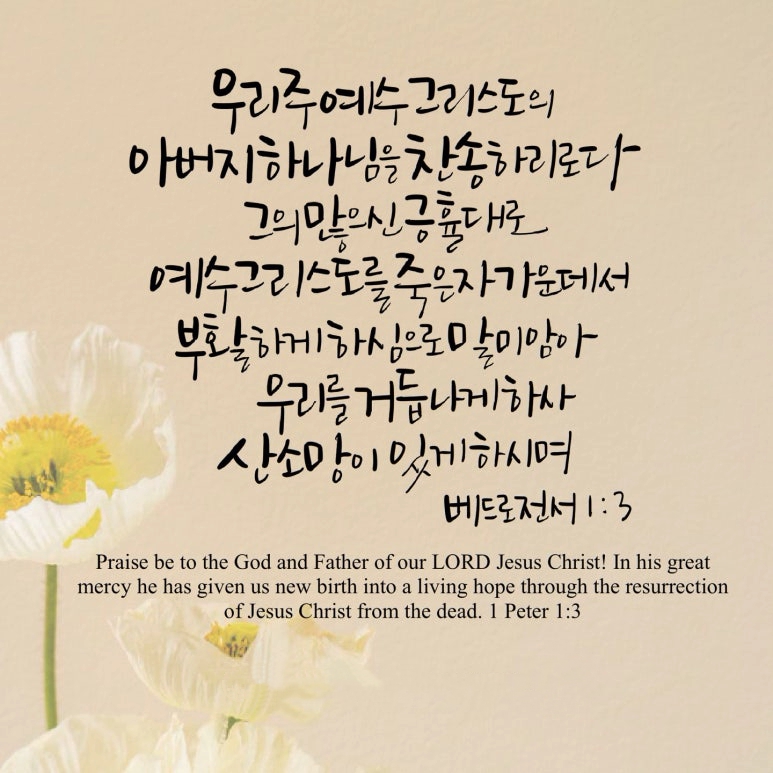 우리주 예수 그리스도의
아버지 하나님을 찬송하리로다
그의 많으신 긍휼대로
예수 그리스도를 죽은자 가운데서
부활하게 하심으로 말미암아
우리를 거듭나게 하사
산 소망이 있게 하시며
베드로전서 1:3
Praise be to the God and Father of our LORD Jesus Christ! In his great
mercy he has given us new birth into a living hope through the resurrection
of Jesus Christ from the dead. 1 Peter 1:3